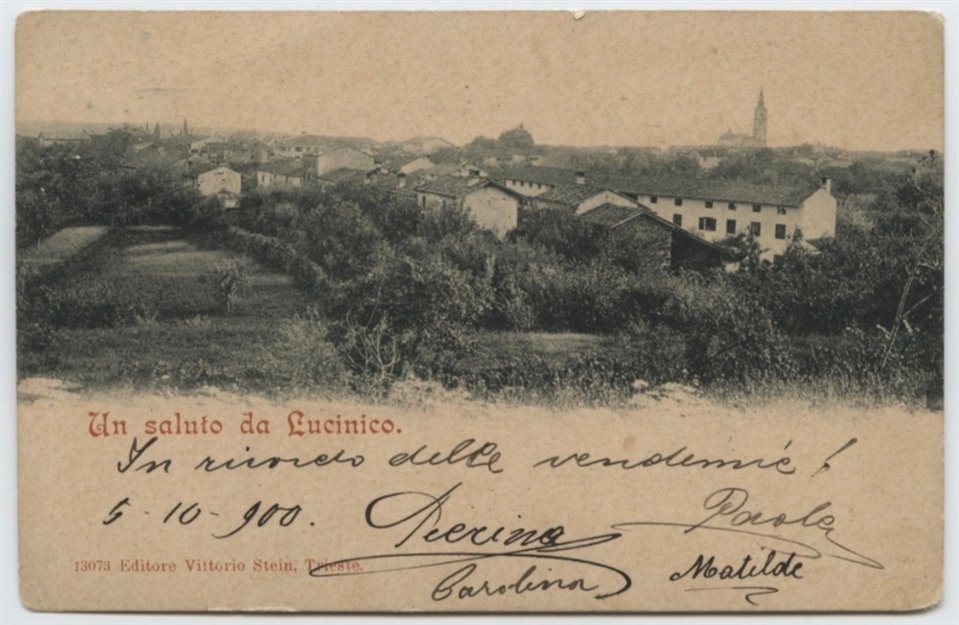 Un saluto da Lucinico.
In ricordo delle vendemie!
5-10-900. Pierina Paola
13073 Editore Vittorio Stein, Trieste.
Carolina Matilde